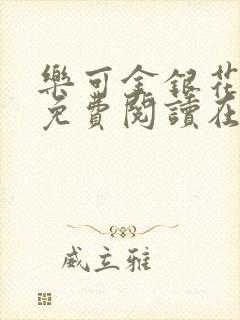 樂可金銀花
免費閱讀在
威立雅